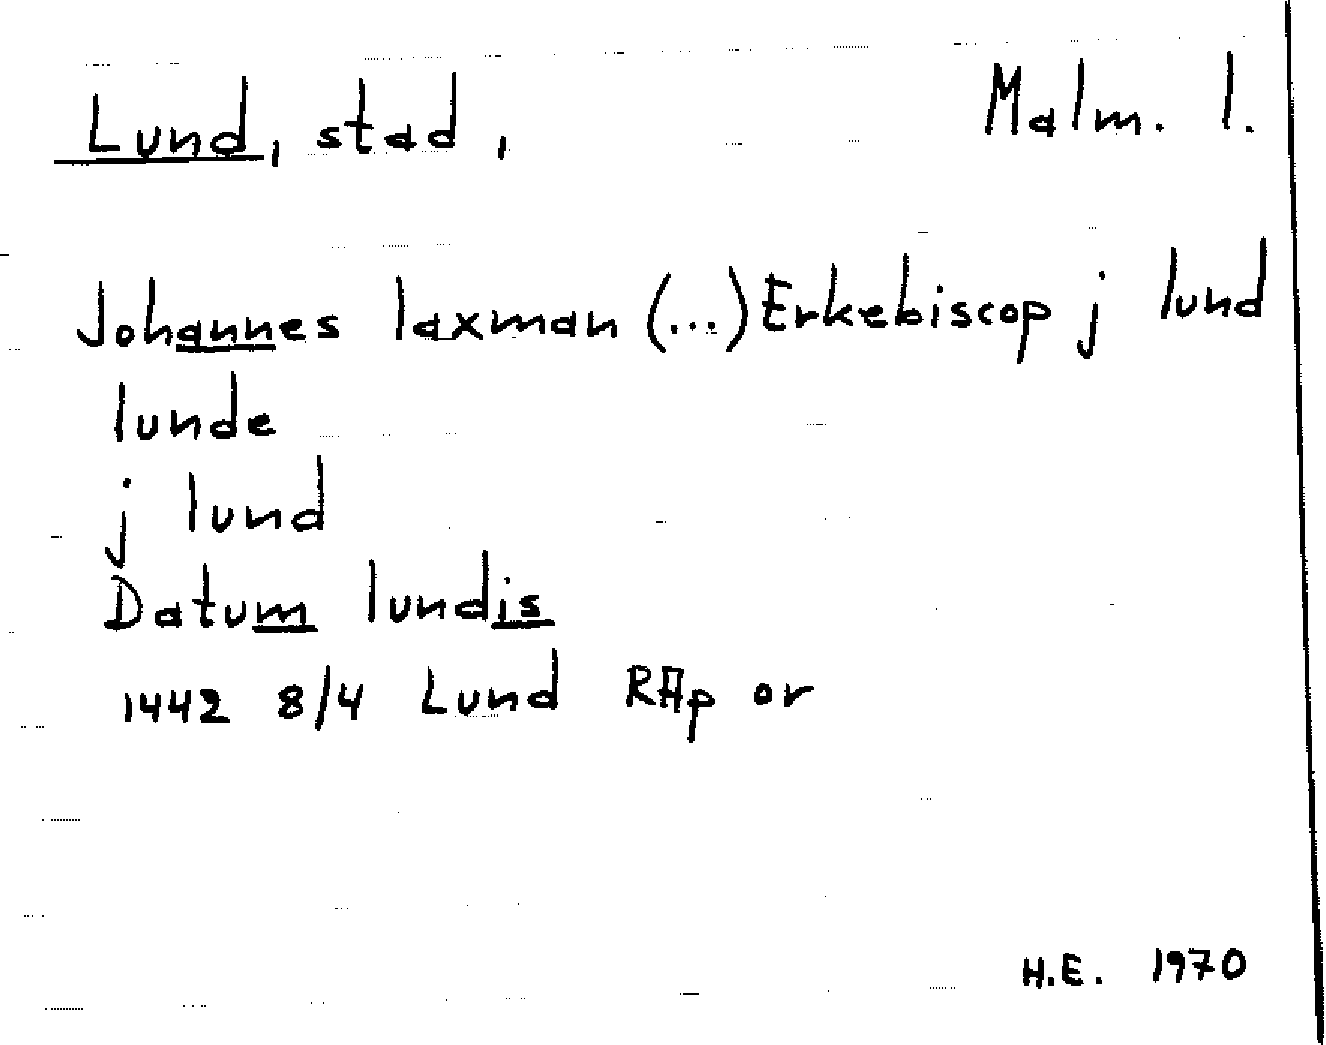 Lund, stad, Malm. l.
Johannes laxman (...) Erkebiscop j lund
lunde
j lund
Datum lundis
1442 8/4 Lund RAp or
H.E. 1970